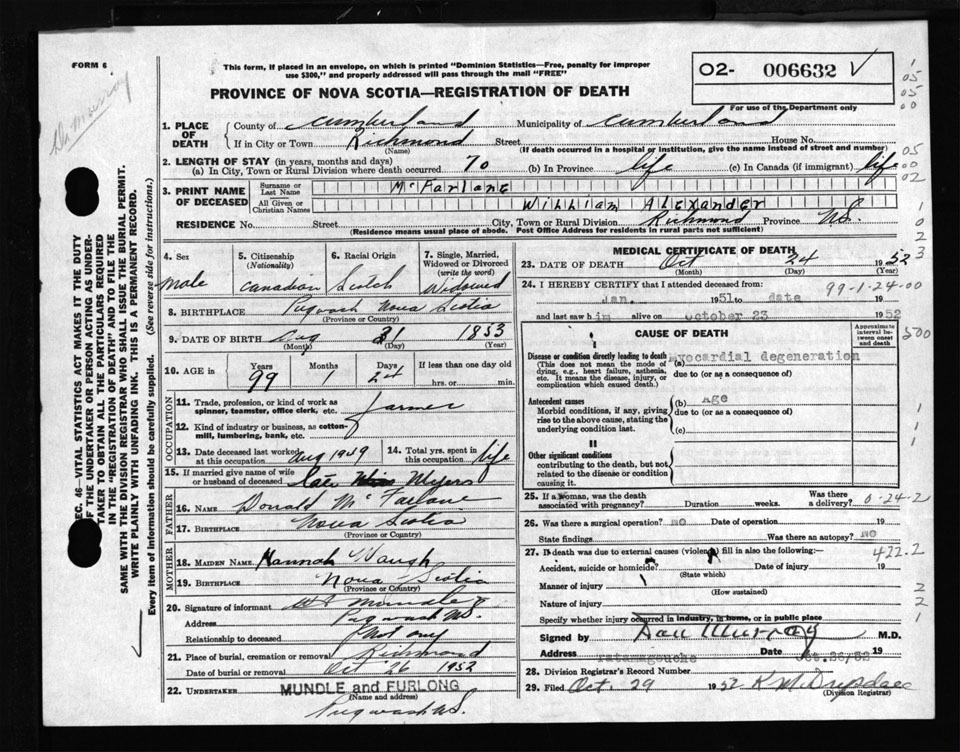 FORM 6
This form, if placed in an envelope, on which is printed "Dominion Statistics—Free, penalty for improper
use $300," and properly addressed will pass through the mail "FREE"
02- 006632
For use of the Department only
PROVINCE OF NOVA SCOTIA—REGISTRATION OF DEATH
1. PLACE OF DEATH
County of Cumberland Municipality of Cumberland
If in City or Town Richmond Street House No.
(Name) (If death occurred in a hospital or institution, give the name instead of street and number)
2. LENGTH OF STAY (in years, months and days)
(a) In City, Town or Rural Division where death occurred 70 (b) In Province life (c) In Canada (if immigrant) life
3. PRINT NAME OF DECEASED
Surname or Last Name McFarlane
All Given or Christian Names William Alexander
RESIDENCE No. Street City, Town or Rural Division Richmond Province N.S.
(Residence means usual place of abode. Post Office Address for residents in rural parts not sufficient)
4. Sex
Male
5. Citizenship (Nationality)
Canadian
6. Racial Origin
Scotch
7. Single, Married, Widowed or Divorced (write the word)
Widowed
8. BIRTHPLACE Pugwash Nova Scotia
(Province or Country)
9. DATE OF BIRTH Aug 31 1853
(Month) (Day) (Year)
10. AGE Years Months Days If less than one day old
99 1 24 hrs. or min.
OCCUPATION
11. Trade, profession, or kind of work as spinner, teamster, office clerk, etc. farmer
12. Kind of industry or business, as cotton-mill, lumbering, bank, etc.
13. Date deceased last worked at this occupation Aug 1949
14. Total yrs. spent in this occupation life
15. If married give name of wife or husband of deceased late Myers
FATHER
16. Name Donald McFarlane
17. Birthplace Nova Scotia
(Province or Country)
MOTHER
18. Maiden Name Hannah Waugh
19. Birthplace Nova Scotia
(Province or Country)
20. Signature of informant Mundle
Address Pugwash N.S.
Relationship to deceased Not any
21. Place of burial, cremation or removal Richmond
Date of burial or removal Oct 26 1952
22. UNDERTAKER MUNDLE and FURLONG
(Name and address)
Pugwash N.S.
MEDICAL CERTIFICATE OF DEATH
23. DATE OF DEATH Oct 24 1952
(Month) (Day) (Year)
24. I HEREBY CERTIFY that I attended deceased from:
Jan. 1951 to date 19
99-1-24-00
and last saw him alive on October 23 1952
CAUSE OF DEATH
Approximate interval between onset and death
Disease or condition directly leading to death
(This does not mean the mode of dying, e.g., heart failure, asthenia, etc. It means the disease, injury, or complication which caused death.)
(a) myocardial degeneration
due to (or as a consequence of)
Antecedent causes
Morbid conditions, if any, giving rise to the above cause, stating the underlying condition last.
(b) Age
due to (or as a consequence of)
(c)
II
Other significant conditions
contributing to the death, but not related to the disease or condition causing it.
25. If a woman, was the death associated with pregnancy? Duration weeks. Was there a delivery?
0-24-2
26. Was there a surgical operation? no Date of operation 19
State findings Was there an autopsy? No
27. If death was due to external causes (violence) fill in also the following:—
422.2
Accident, suicide or homicide? Date of injury 19
(State which)
Manner of injury
(How sustained)
Nature of injury
Specify whether injury occurred in industry, in home, or in public place
Signed by Dan Murray M.D.
Address Tatamagouche Date Oct.26/52 19
28. Division Registrar's Record Number
29. Filed Oct. 29 1952
(Division Registrar)
SEC. 46—VITAL STATISTICS ACT MAKES IT THE DUTY
OF THE UNDERTAKER OR PERSON ACTING AS UNDERTAKER TO OBTAIN ALL THE PARTICULARS REQUIRED
IN THE "REGISTRATION OF DEATH" AND TO FILE THE
SAME WITH THE DIVISION REGISTRAR WHO SHALL ISSUE THE BURIAL PERMIT.
WRITE PLAINLY WITH UNFADING INK. THIS IS A PERMANENT RECORD.
Every item of information should be carefully supplied. (See reverse side for instructions.)